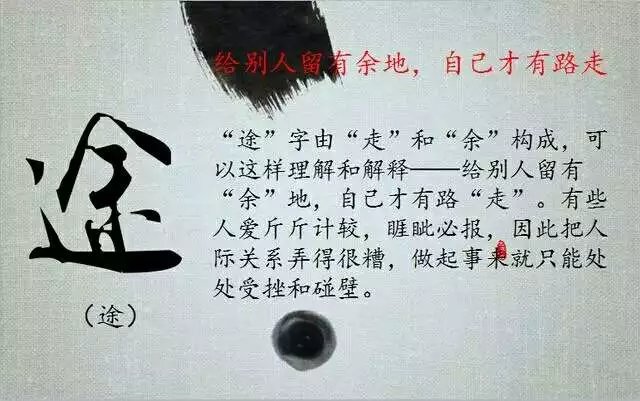 给别人留有余地，自己才有路走
途
（途）
“途”字由“走”和“余”构成，可
以这样理解和解释——给别人留有
“余”地，自己才有路“走”。有些
人爱斤斤计较，睚眦必报，因此把人
际关系弄得很糟，做起事来就只能处
处受挫和碰壁。